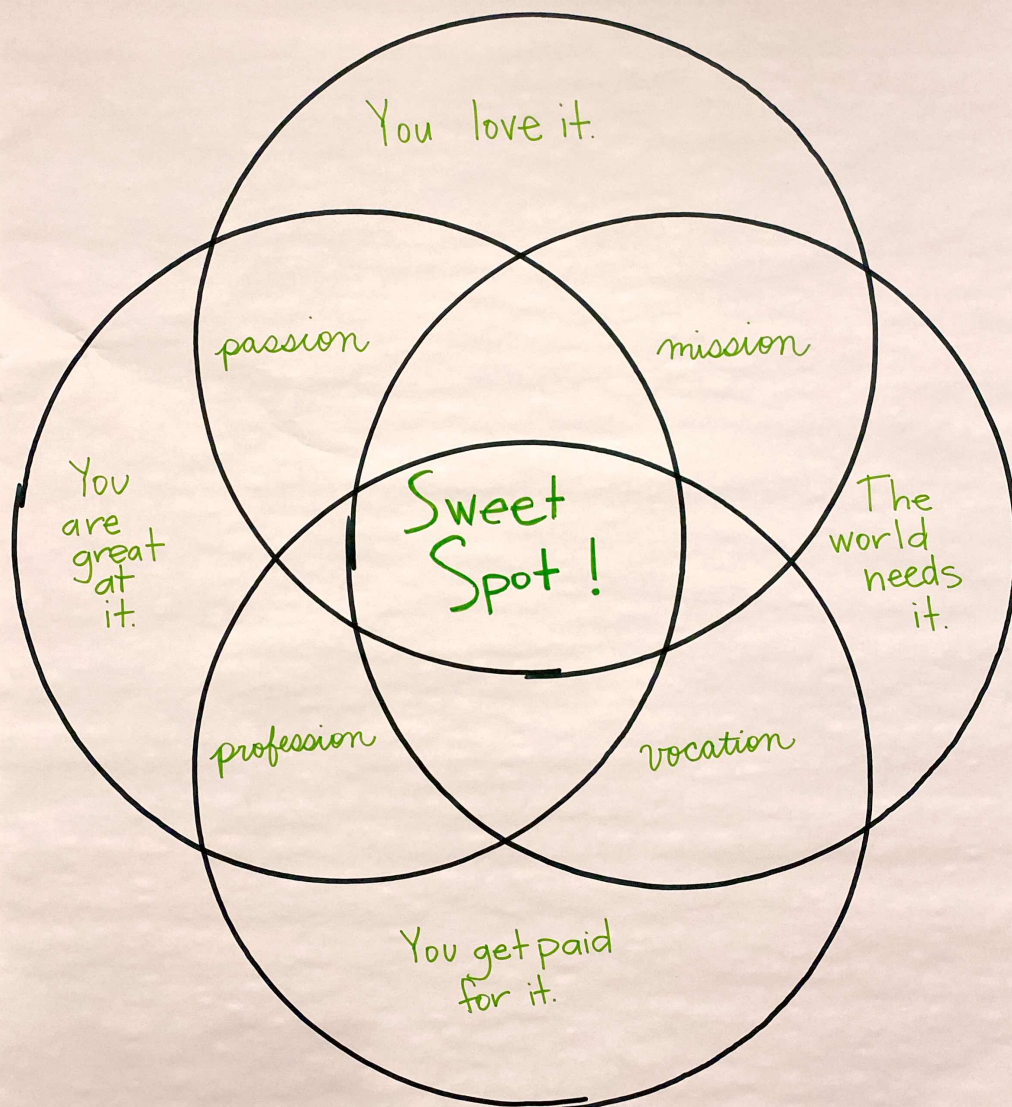 You love it.
passion
mission
You
are
great
at
it.
Sweet
Spot!
The
world
needs
it.
profession
vocation
You get paid
for it.